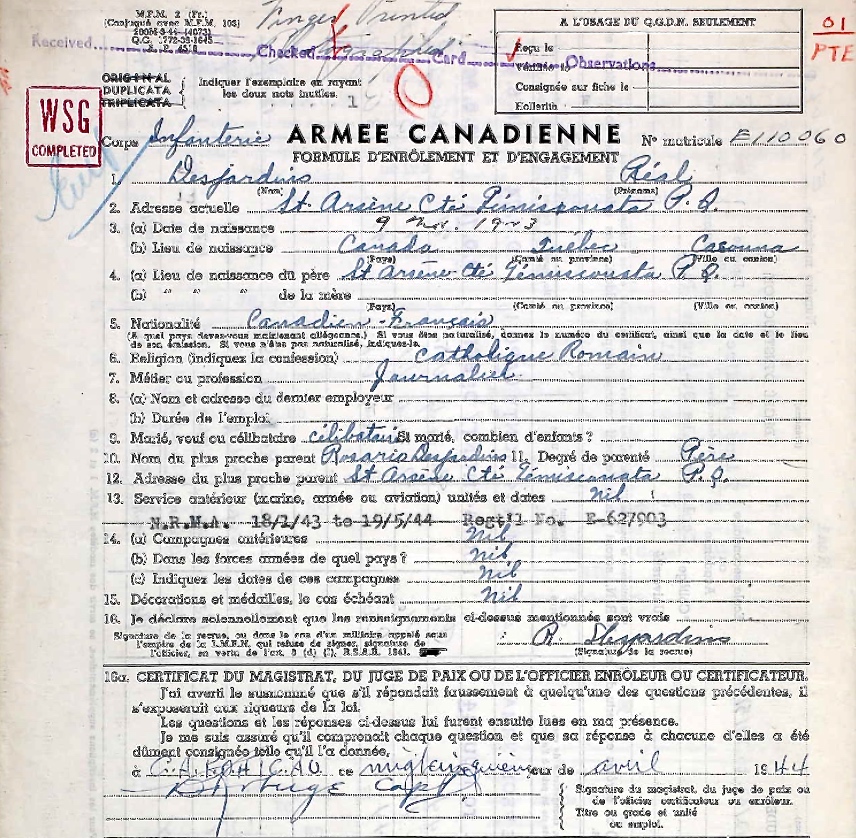 M.F.M. 2 (Fr.)
(Conjugué avec M.F.M. 103)
200M-3-44 (4073)
Q.G. 772-33-1645
Finger Printed
Received Checked Card Observations
ORIGINAL
DUPLICATA
TRIPLICATA
Indiquer l'exemplaire en rayant
les deux mots inutiles.
A L'USAGE DU Q.G.D.N. SEULEMENT
Reçu le
Vérifié le
Consignée sur fiche le
Hollerith
01
PTE
WSG
COMPLETED
Corps Infanterie ARMEE CANADIENNE No matricule E110060
FORMULE D'ENRÔLEMENT ET D'ENGAGEMENT
1. Desjardins Réal
(Nom) (Prénoms)
2. Adresse actuelle St. Arsène Cté Témiscouata P.Q.
3. (a) Date de naissance 9 Nov. 1923
(b) Lieu de naissance Canada Québec Cacouna
(Pays) (Comté ou province) (Ville ou canton)
4. (a) Lieu de naissance du père St Arsène Cté Témiscouata P.Q.
(b) " " " de la mère
(Pays) (Comté ou province) (Ville ou canton)
5. Nationalité Canadien-Français
(A quel pays devez-vous maintenant allégeance.) Si vous êtes naturalisé, donnez le numéro du certificat, ainsi que la date et le lieu
de son émission. Si vous n'êtes pas naturalisé, indiquez-le.
6. Religion (indiquez la confession) Catholique Romain
7. Métier ou profession Journalier
8. (a) Nom et adresse du dernier employeur
(b) Durée de l'emploi
9. Marié, veuf ou célibataire célibataire Si marié, combien d'enfants?
10. Nom du plus proche parent Rosario Desjardins 11. Degré de parenté Père
12. Adresse du plus proche parent St Arsène Cté Témiscouata P.Q.
13. Service antérieur (marine, armée ou aviation) unités et dates nil
N.R.M.A. 18/1/43 to 19/5/44 Regt'l No. E-627903
14. (a) Campagnes antérieures Nil
(b) Dans les forces armées de quel pays? Nil
(c) Indiquez les dates de ces campagnes Nil
15. Décorations et médailles, le cas échéant Nil
16. Je déclare solennellement que les renseignements ci-dessus mentionnés sont vrais
Signature de la recrue, ou dans le cas d'un militaire appelé sous
l'empire de la L.M.R.N. qui refuse de signer, signature de
l'officier, en vertu de l'art. 3 (d) (2), R.S.A.R. 1941.
R. Desjardins
(Signature de la recrue)
16a. CERTIFICAT DU MAGISTRAT, DU JUGE DE PAIX OU DE L'OFFICIER ENRÔLEUR OU CERTIFICATEUR.
J'ai averti le susnommé que s'il répondait faussement à quelqu'une des questions précédentes, il
s'exposerait aux rigueurs de la loi.
Les questions et les réponses ci-dessus lui furent ensuite lues en ma présence.
Je me suis assuré qu'il comprenait chaque question et que sa réponse à chacune d'elles a été
dûment consignée telle qu'il l'a donnée,
à ce jour de avril 1944
Capt.
Signature du magistrat, du juge de paix ou
de l'officier certificateur ou enrôleur.
Titre ou grade et unité
ou emploi.